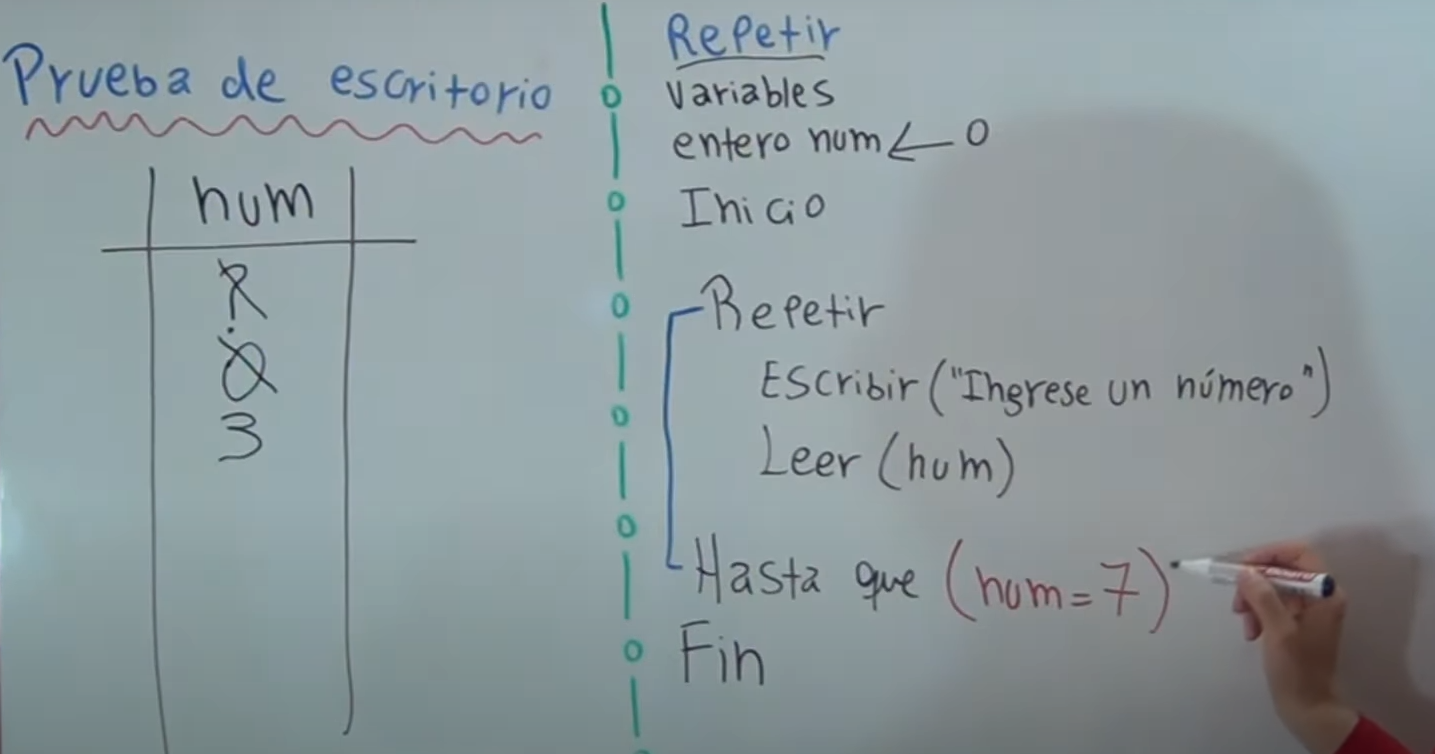 Prueba de escritorio
num
3
Repetir
Variables
entero num ← 0
Inicio
Repetir
Escribir ("Ingrese un número")
Leer (num)
Hasta que (num = 7)
Fin